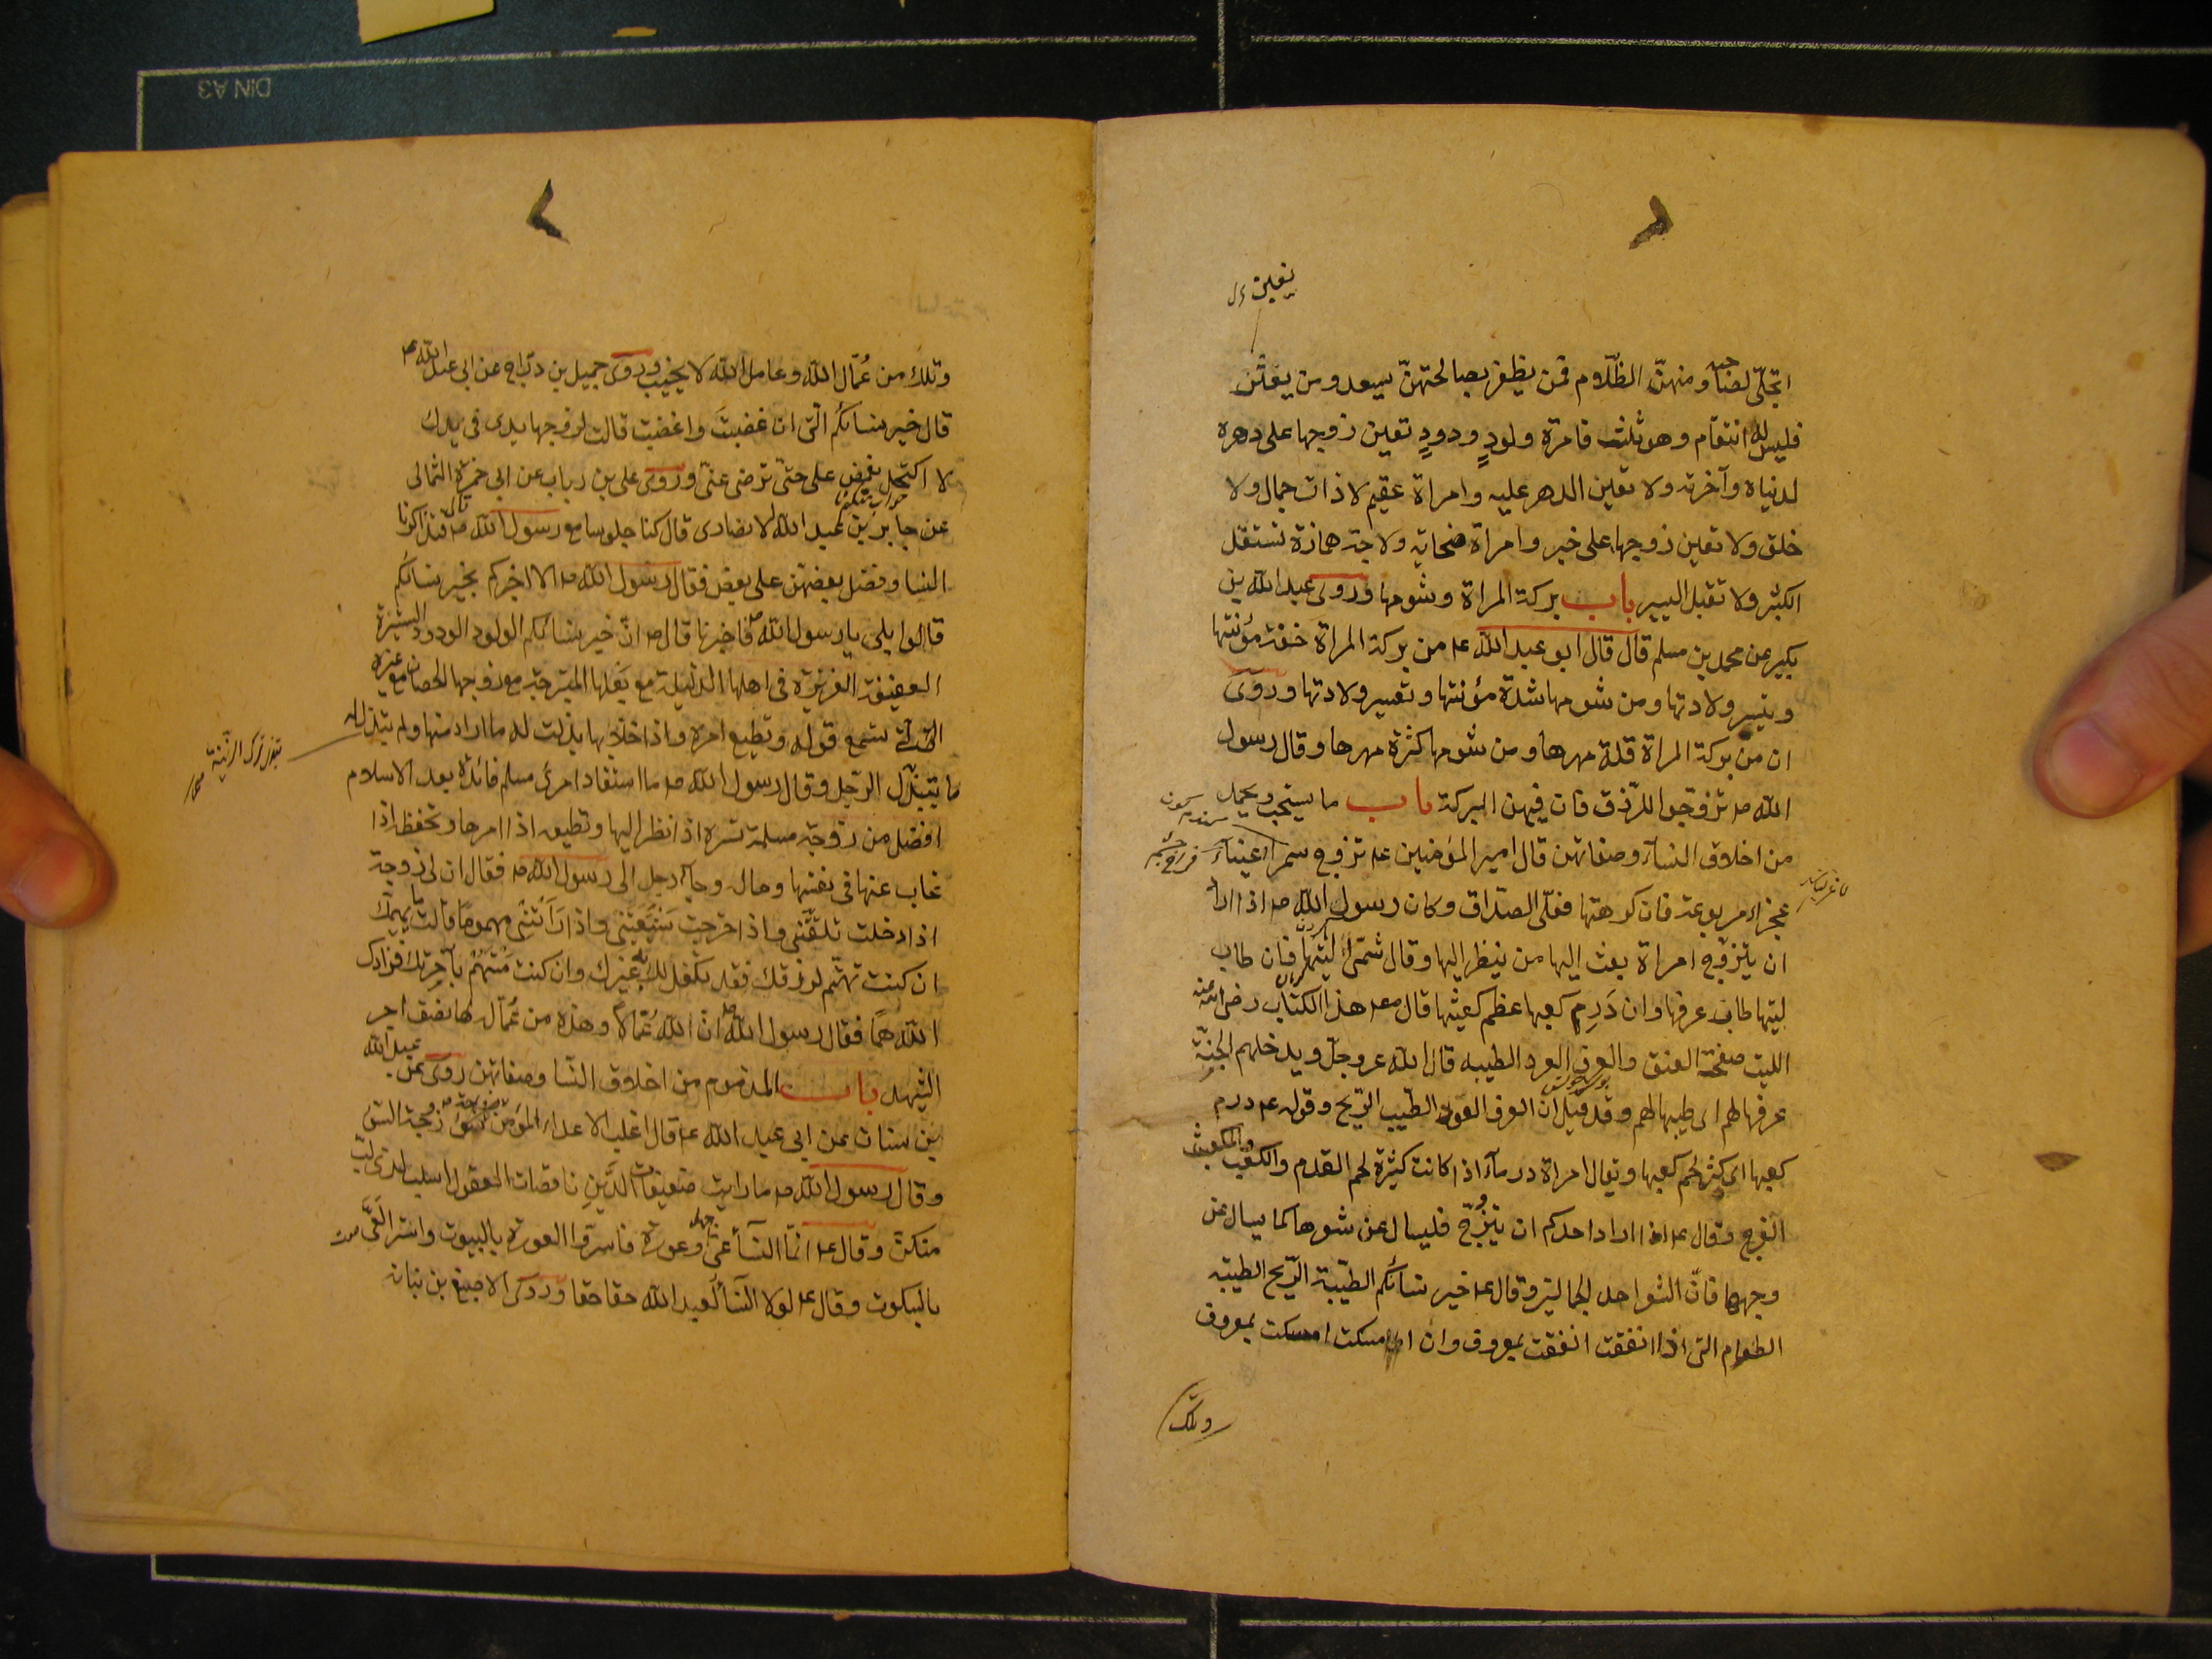 يغبن ل
اتجلّى لصنا و منهنّ الظلّام فمن يظفر بصالحتهنّ يسعد ومن يغثن
فليس له انتقام وهن ثلث فامرة ولودٍ ودودٍ تعين زوجها على دهره
لدنياه وآخرته ولا تعين الدهر عليه وامراة عقيم لا ذات جمال ولا
خلق ولا تعين زوجها على خير وامراة ضحابه ولاجة همازة تستقل
الكثير ولا تقبل اليسير باب بركة المراة وشومها وروى عبد الله بن
بكير عن محمد بن مسلم قال قال ابو عبد الله ع من بركة المراة خفة مؤنتها
وتيسر ولادتها ومن شومها شدة مؤنتها وتعسير ولادتها وروى
ان من بركة المراة قلة مهرها ومن شومها كثرة مهرها وقال رسول
الله ص تزوجوا للرزق فان فيهن البركة باب ما يستحب ويحمد
من اخلاق النساء وصفاتهن قال امير المؤمنين ع تزوج سمراء عيناء
عجزاء مربوعة فان كرهتها فعلّى الصداق وكان رسول الله ص اذا اراد
ان يتزوج امراة بعث اليها من ينظر اليها وقال شمّى ليتها فان طاب
ليتها طاب عرفها وان دَرِم كعبها عظم كعثبها قال مص هذا الكتاب رضى الله عنه
الليت صفحة العنق والعرف العود الطيبه قال الله عز وجل ويدخلهم الجنة
عرفها لهم اى طيبها لهم وقد قيل ان العرف العود الطيب الريح وقوله ع درم
كعبها اى كثر لحم كعبها ويقال امراة درماء اذا كانت كثيرة لحم القدم والكعب والكعثب
الفرج وقال ع اذا اراد احدكم ان يتزوج فليسال عن شعرها كما يسال عن
وجهها فان الشعر احد الجمالين وقال ع خير نسائكم الطيبة الريح الطيبه
الطعام التى اذا انفقت انفقت بمعروف وان امسكت امسكت بمعروف
وتلك
وتلك من عُمّال الله وعامل الله لا يخيب وروى جميل بن درّاج عن ابى عبد الله ع
قال خير نسائكم التى ان غضبت واغضبت قالت لزوجها يدى فى يدك
لا اكتحل بغمض على حتى ترضى عنّى وروى على بن رباب عن ابى حمزة الثمالى
عن جابر بن عبد الله الانصارى قال كنا جلوسا مع رسول الله ص فتذاكرنا
النسا وفضل بعضهن على بعض فقال رسول الله ص الا اخبركم بخير نسائكم
قالوا بلى يا رسول الله فاخبرنا قال ص انّ خير نسائكم الولود الودود الستيرة
العفيفة العزيزة فى اهلها الذليلة مع بعلها المتبرجة مع زوجها الحصان مع غيره
التى تسمع قوله وتطيع امره واذا خلا بها بذلت له ما اراد منها ولم تبذل له
ما يتبذّل الرجل وقال رسول الله ص ما استفاد امرئ مسلم فائدة بعد الاسلام
افضل من زوجة مسلمة تسره اذا نظر اليها وتطيعه اذا امرها وتحفظ اذا
غاب عنها فى نفسها وماله وجاء رجل الى رسول الله ص فقال ان لى زوجة
اذا دخلت تلقّتنى واذا خرجت شيّعتنى واذا رأتنى مهموما قالت ما يهمّك
ان كنت تهتم لرزقك فقد تكفل لك به غيرك وان كنت مُتهَمُّ بآخرتك فزادك
الله هَمّا فقال رسول الله ان الله عُمّالا وهذه من عُمّاله لها نصف اجر
الشهيد باب المذموم من اخلاق النسا وصفاتهن روى عبد الله
بن سنان عن ابى عبد الله ع قال اغلب الاعداء المؤمن زوجة السوء
وقال رسول الله ص ما رايت ضعيفات الدّينِ ناقصات العقول اسلب لذى لبّ
منكن وقال ع انّما النسآء عىّ وعورة فاستروا العورة بالبيوت واستروا العىّ
بالسكوت وقال ع لولا النسآء لُعبد الله حقا حقا وروى الاصبغ بن نباته